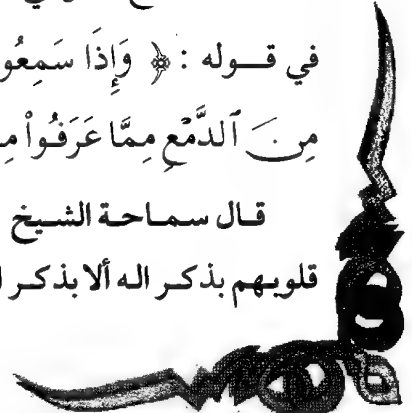 في قـــوله : ﴿ وَإِذَا سَمِعُو
مِنَ ٱلدَّمْعِ مِمَّا عَرَفُوا۟ مِـ
قـال سمـاحـة الشـيخ
قلوبـهم بذكـر الـه ألا بذكـر ا